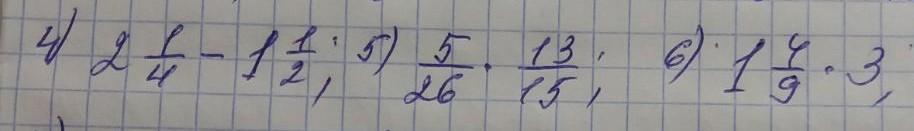 4) 2 1/4 - 1 1/2; 5) 5/26 · 13/15; 6) 1 4/9 · 3,